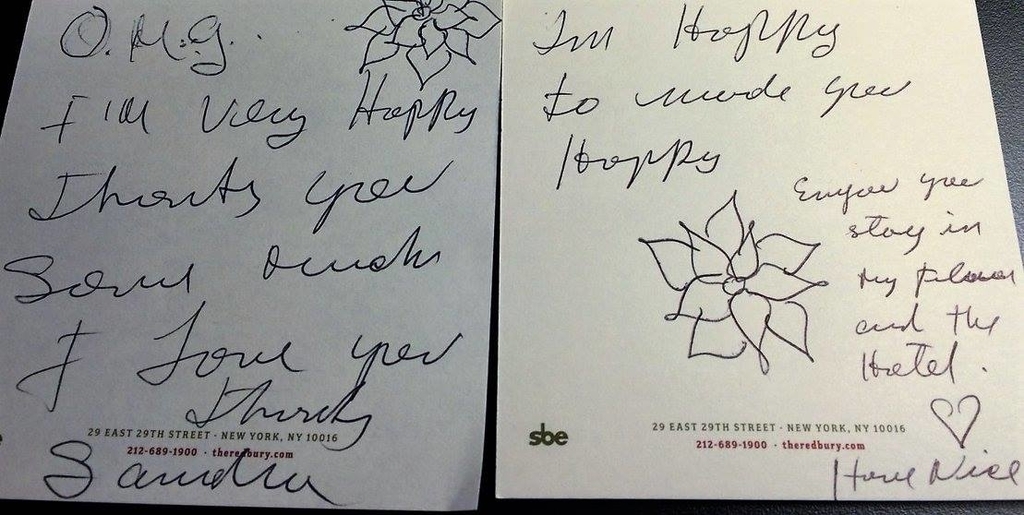 O.M.G..
I'm Very Happy
Thanks you
Some much
I Love you
Thanks
29 EAST 29TH STREET · NEW YORK, NY 10016
212-689-1900 · theredbury.com
Sandra
I'm Happy
to made you
Happy
Enyou you
stay in
my floor
and the
Hotel.
sbe
29 EAST 29TH STREET · NEW YORK, NY 10016
212-689-1900 · theredbury.com
Have Nice